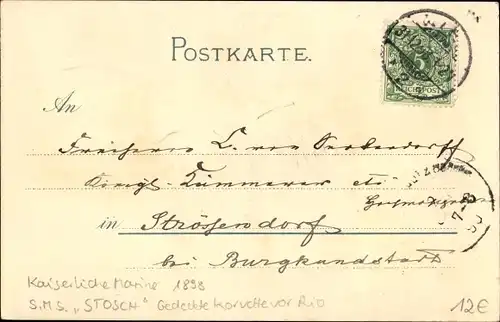 POSTKARTE.
5
REICHSPOST
An
Freiherrn C. von
Königl. Kämmerer etc
in Strössendorf
bei Burgkundstadt
7-8
Kaiserliche Marine 1898
S.M.S. „STOSCH" Gedeckte Korvette vor Rio
12€